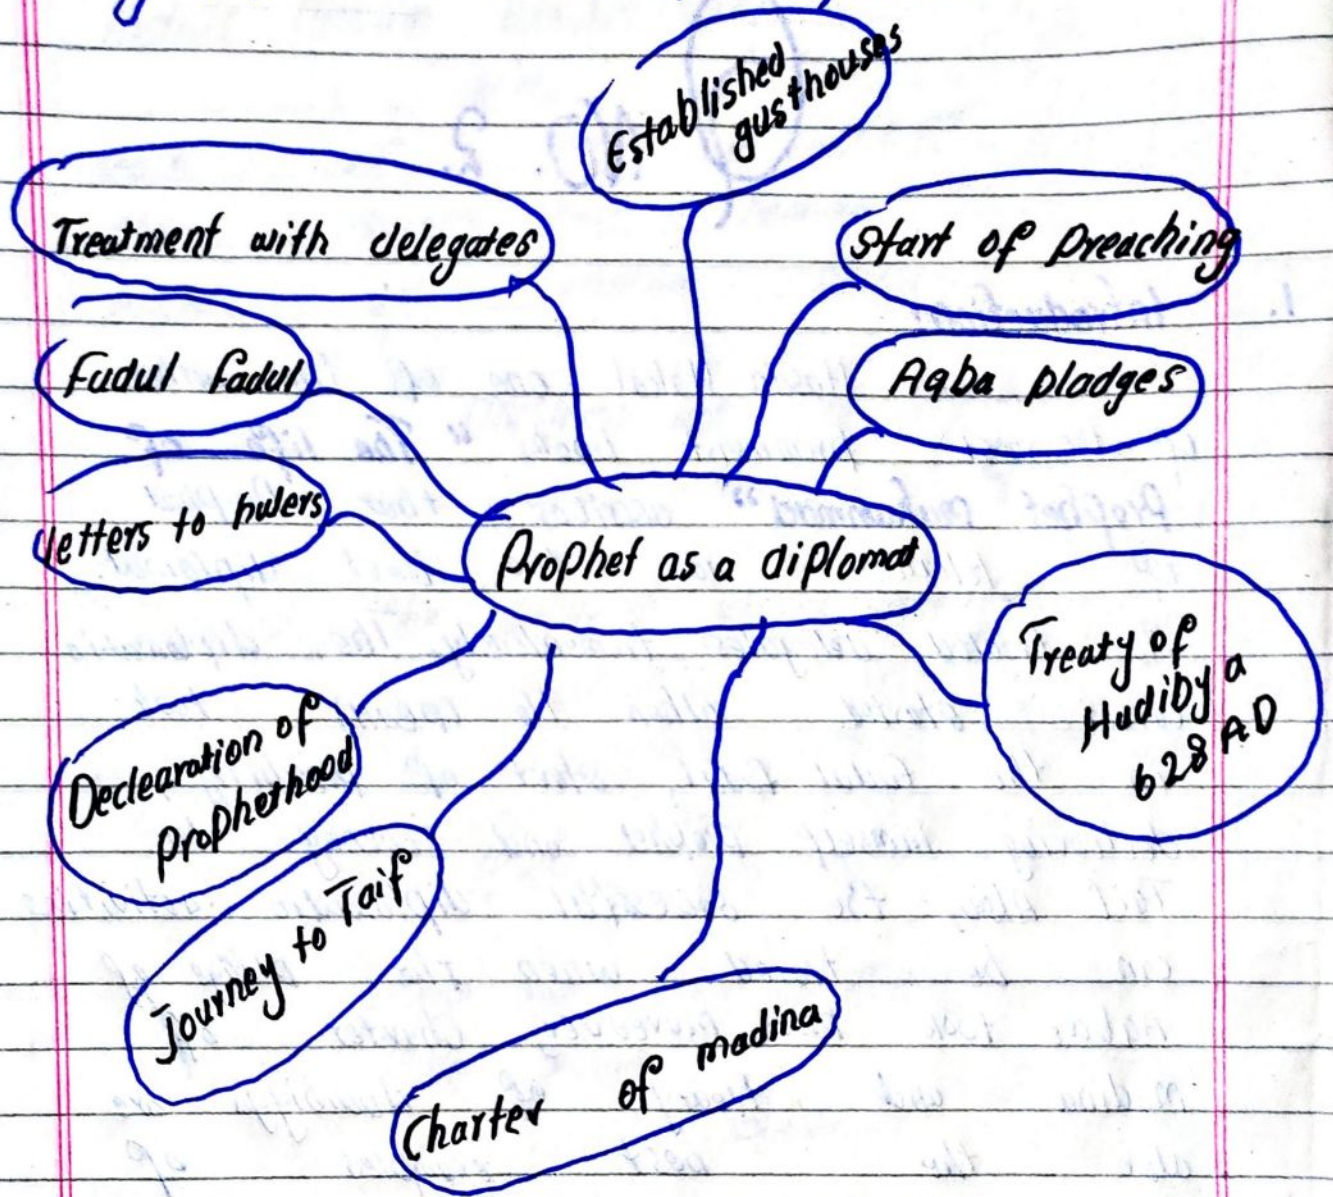 Established
gusthouses
Treatment with delegates
Start of preaching
Fudul fadul
Aqba pladges
letters to rulers
Prophet as a diplomat
Treaty of
Hudibya
628 AD
Declearation of
prophethood
Journey to Taif
Charter of madina